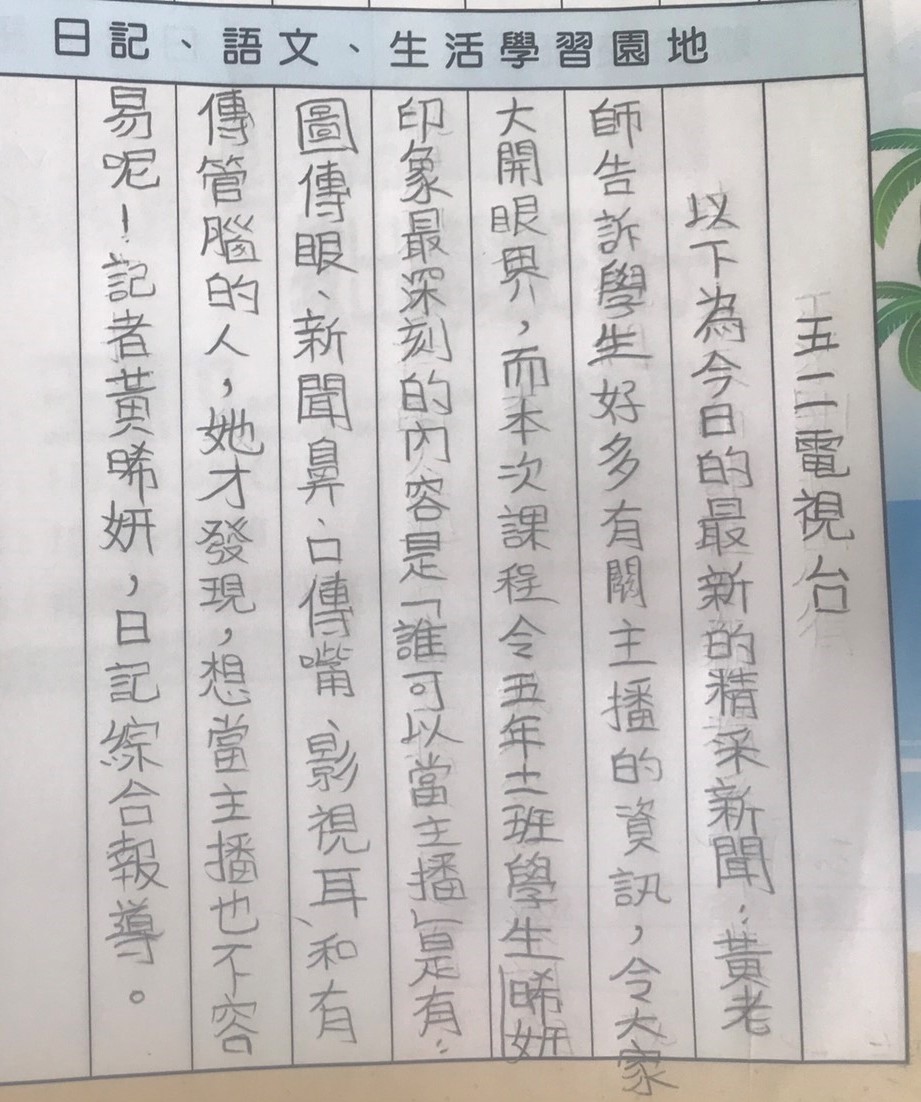 日記、語文、生活學習園地
五一二電視台
以下為今日的最新的精采新聞：黃老
師告訴學生好多有關主播的資訊，令大家
大開眼界，而本次課程令五年十二班學生晞妍
印象最深刻的內容是「誰可以當主播」是有：
圖傳眼、新聞鼻、口傳嘴、影視耳、和有
傳管腦的人，她才發現，想當主播也不容
易呢！記者黃晞妍，日記綜合報導。